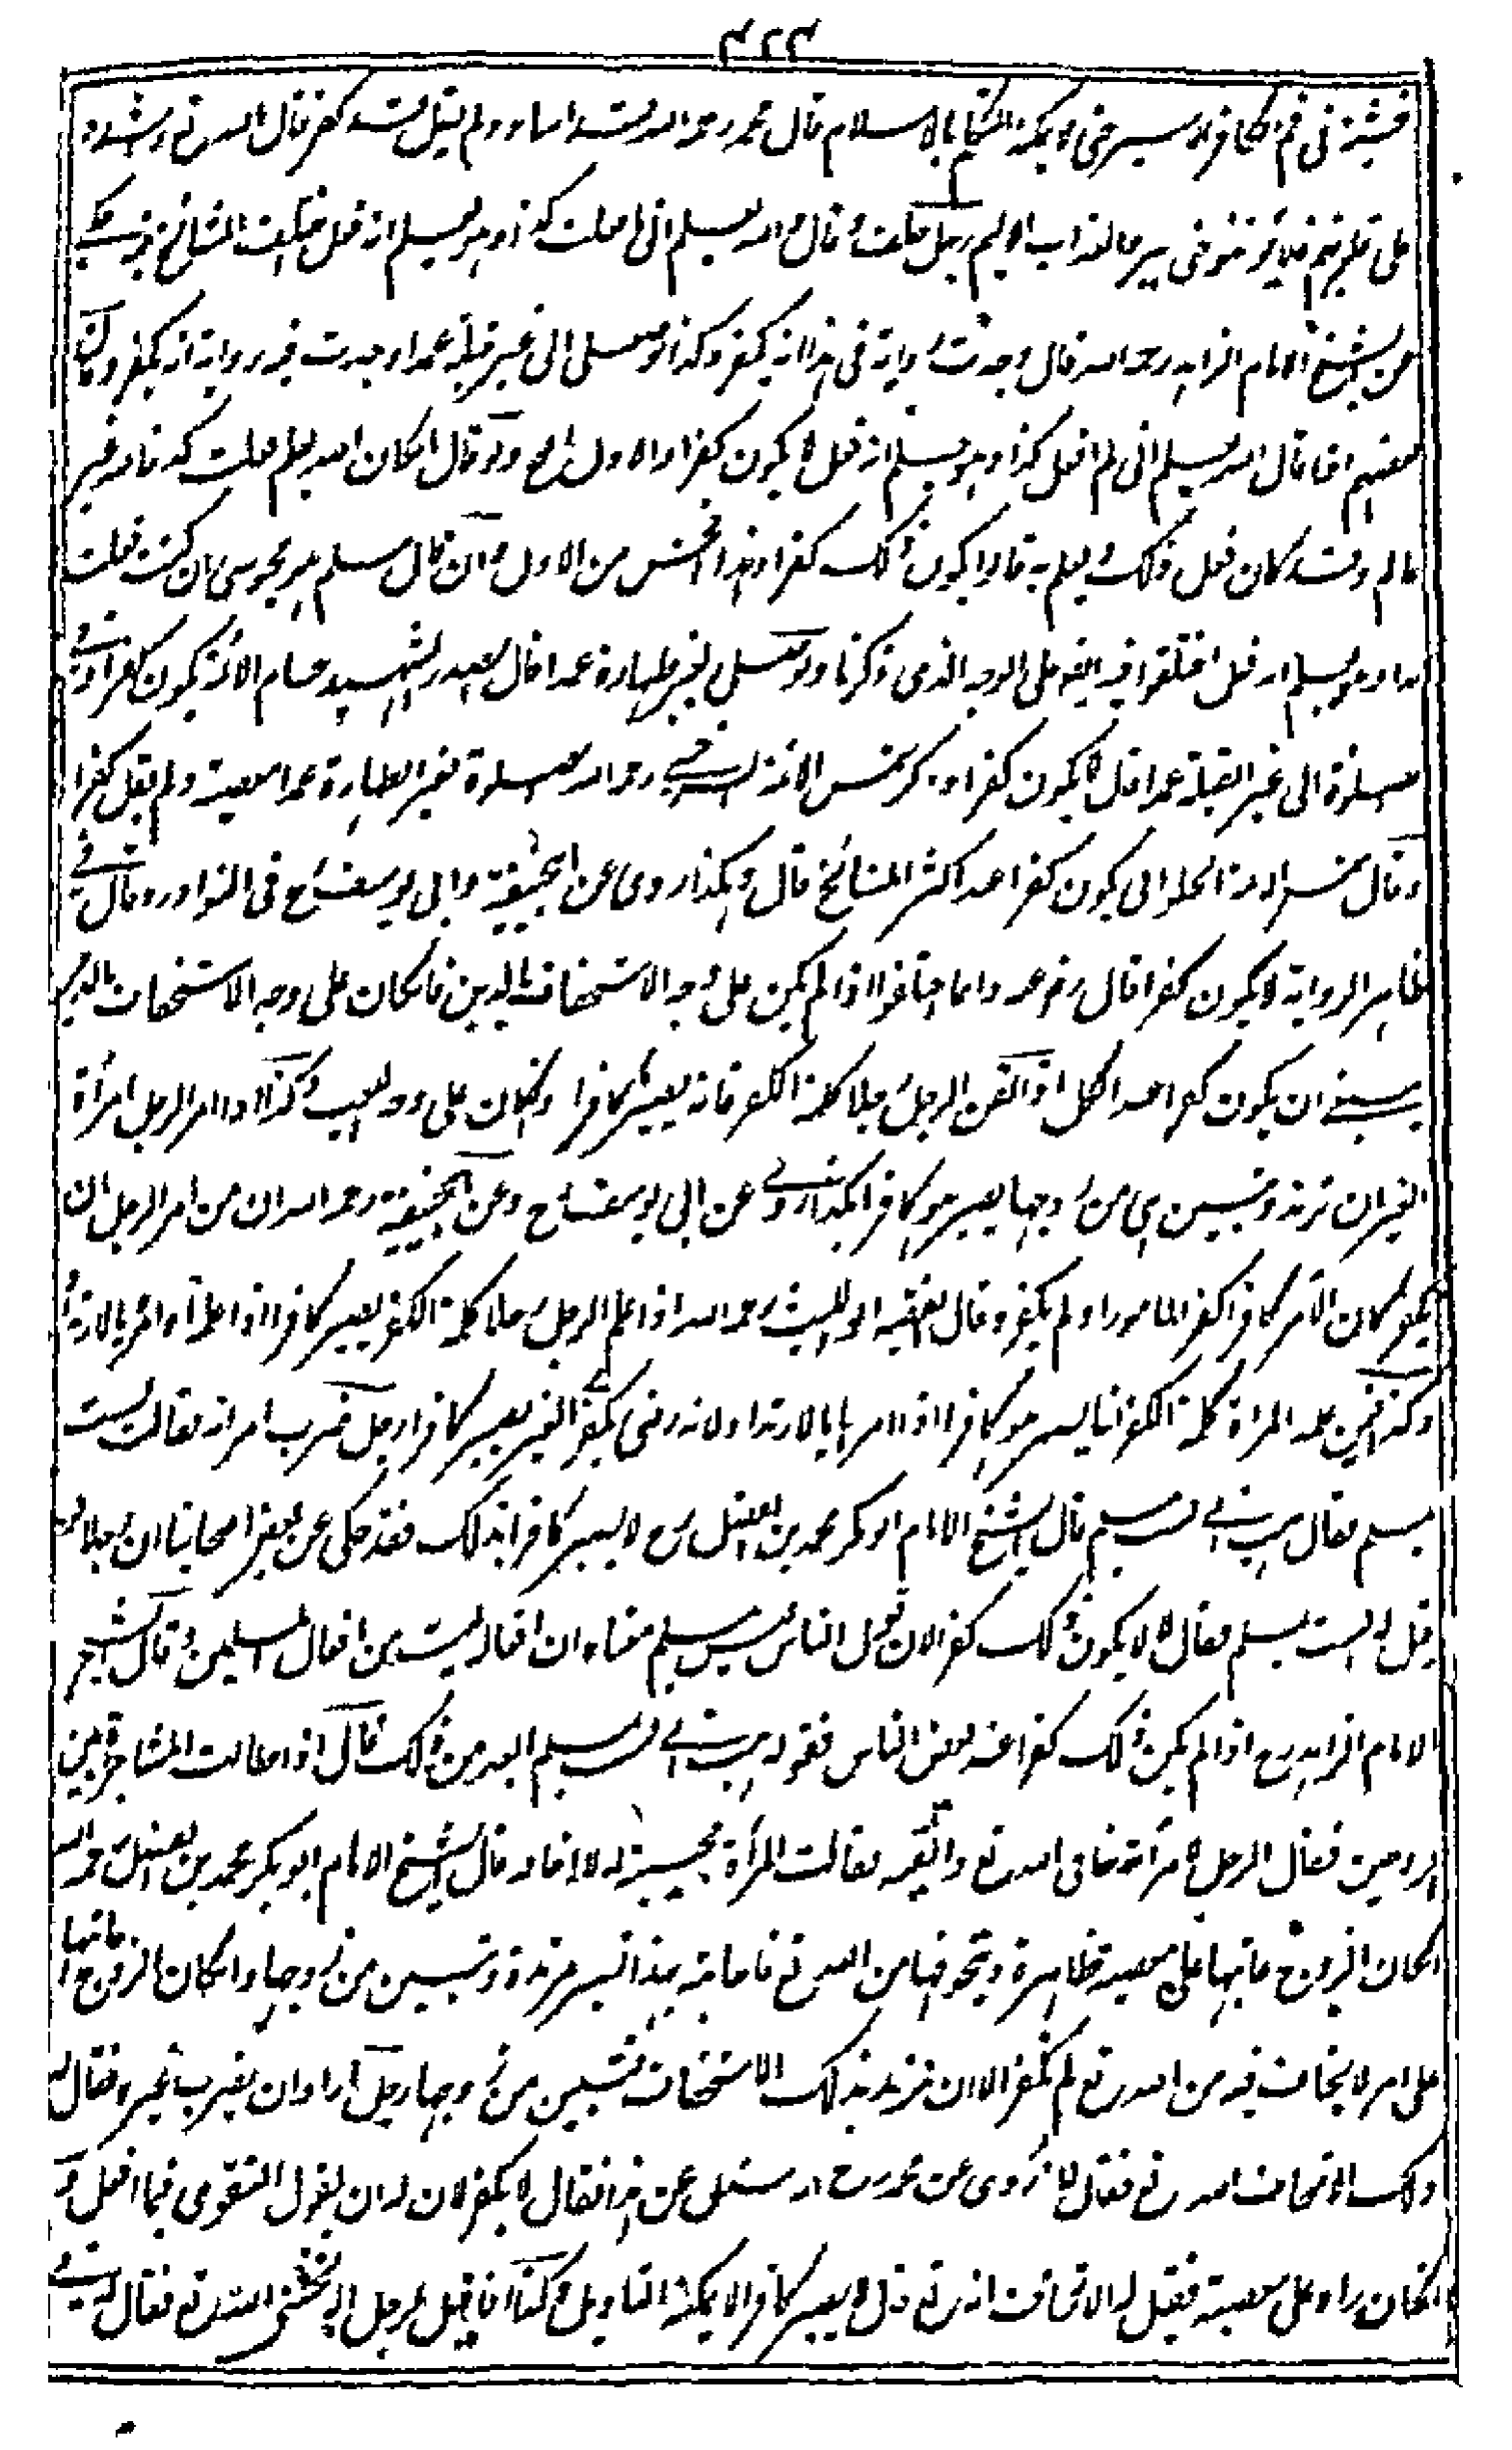 ٤٢٤
في فم الكافر الاسير حتى لا يمكنه التكلم بالاسلام قال محمد رحمه الله اساء ولم يقل فقد كفر قال الله تع واشدد
على قلوبهم فلا يؤمنوا حتى يروا العذاب الاليم رجل حلف وقال الله يعلم اني ما فعلت كذا وهو يعلم انه فعل اختلف المشائخ فيه
عن الشيخ الامام الزاهد رحمه الله قال وجدت رواية في هذا انه يكفر وكذا لو صلى الى غير قبلة عمدا وجدت فيه رواية انه يكفر وقال
بعضهم اذا قال الله يعلم اني لم افعل كذا وهو يعلم انه فعل لا يكون كفرا والاول اصح ولو قال ان كان الله يعلم فعلت كذا فامرأته
وقد كان فعل ذلك ولم يعلم به قالوا يكون ذلك كفرا وهذا افحش من الاول وان قال مسلم هو مجوسي ان كنت فعلت
كذا وهو يعلم انه فعل اختلفوا فيه ايضا على الوجه الذي ذكرنا ولو صلى بغير طهارة عمدا قال الصدر الشهيد حسام الائمة يكون كفرا وفي
الصلوة الى غير القبلة عمدا قال لا يكون كفرا وذكر شمس الائمة السرخسي رحمه الله الصلوة بغير الطهارة عمدا معصية ولم يقل كفرا
وقال شمس الائمة الحلوائي يكون كفرا عند اكثر المشائخ قال وهكذا روي عن ابي حنيفة وابي يوسف رح في النوادر وقال في
ظاهر الرواية لا يكون كفرا قال رضي الله عنه وانما اختلفوا اذا لم يكن على وجه الاستخفاف بالدين فان كان على وجه الاستخفاف بالدين
ينبغي ان يكون كفرا عند الكل اذا لقن الرجل رجلا كلمة الكفر فانه يصير كافرا وان كان على وجه اللعب وكذا اذا امر الرجل امرأة
الغير ان ترتد وتبين هي من زوجها يصير هو كافرا هكذا روي عن ابي يوسف رح وعن ابي حنيفة رحمه الله ان من امر الرجل ان
يكفر كان الآمر كافرا كفر المأمور او لم يكفر وقال الفقيه ابو الليث رحمه الله اذا علم الرجل رجلا كلمة الكفر يصير كافرا اذا علمه وامره بالارتداد
وكذا فيمن علم المرأة كلمة الكفر انما يصير هو كافرا اذا امرها بالارتداد لانه رضي بكفر الغير يصير كافرا رجل ضرب امرأته فقالت لست
بمسلم فقال هب اني لست بمسلم قال الشيخ الامام ابو بكر محمد بن الفضل رح لا يصير كافرا بذلك فقد حكي عن بعض اصحابنا ان رجلا لو
قيل له الست بمسلم فقال لا لا يكون ذلك كفرا لان قول الناس ليس بمسلم معناه ان افعاله ليست من افعال المسلمين وقال الشيخ
الامام الزاهد رح اذا لم يكن ذلك كفرا عند بعض الناس فقوله هب اني لست بمسلم ابعد من ذلك قال اذا طالت المشاجرة بين
الزوجين فقال الرجل لامرأته خافي الله تع واتقيه فقالت المرأة مجيبة له لا اخافه قال الشيخ الامام ابو بكر محمد بن الفضل رحمه الله
ان كان الزوج عاتبها على معصية ظاهرة ويخوفها من الله تع فاجابته بهذا تصير مرتدة وتبين من زوجها وان كان الزوج عاتبها
على امر لا يخاف فيه من الله تع لم تكفر الا ان تريد بذلك الاستخفاف فتبين من زوجها رجل اراد ان يضرب غيره فقال له
ذلك الا تخاف الله تع فقال لا روي عن محمد رح انه سئل عن هذا فقال لا يكفر لان له ان يقول التقوى فيما افعل
ان كان رآه على معصية فقيل له الا تخاف الله تع قال لا يصير كافرا لا يمكنه التأويل وكذا اذا قيل لرجل الا تخشى الله تع فقال في